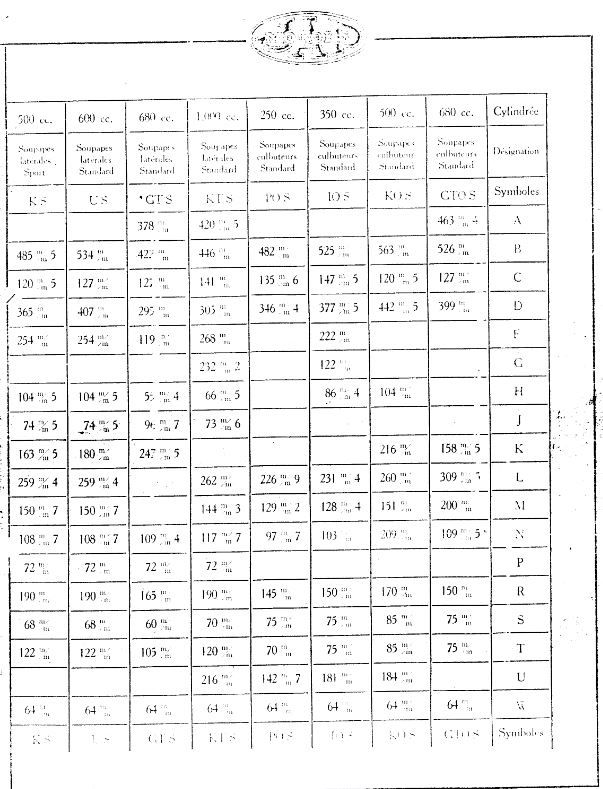 500 cc. 600 cc. 680 cc. 1.000 cc. 250 cc. 350 cc. 500 cc. 680 cc. Cylindrée
Soupapes Soupapes Soupapes Soupapes Soupapes Soupapes Soupapes Soupapes
latérales latérales latérales latérales culbuteurs culbuteurs culbuteurs culbuteurs Désignation
Sport Standard Standard Standard Standard Standard Standard Standard
KS US GTS KTS POS IOS KOS GTOS Symboles
378 m/m 420 m/m 5 463 m/m 4 A
485 m/m 5 534 m/m 422 m/m 446 m/m 482 m/m 525 m/m 563 m/m 526 m/m B
120 m/m 5 127 m/m 127 m/m 141 m/m 135 m/m 6 147 m/m 5 120 m/m 5 127 m/m C
365 m/m 407 m/m 295 m/m 305 m/m 346 m/m 4 377 m/m 5 442 m/m 5 399 m/m D
254 m/m 254 m/m 119 m/m 268 m/m 222 m/m F
232 m/m 2 122 m/m G
104 m/m 5 104 m/m 5 m/m 4 66 m/m 5 86 m/m 4 104 m/m H
74 m/m 5 74 m/m 5 m/m 7 73 m/m 6 J
163 m/m 5 180 m/m 247 m/m 5 216 m/m 158 m/m 5 K
259 m/m 4 259 m/m 4 262 m/m 226 m/m 9 231 m/m 4 260 m/m 309 m/m L
150 m/m 7 150 m/m 7 144 m/m 3 129 m/m 2 128 m/m 4 151 m/m 200 m/m M
108 m/m 7 108 m/m 7 109 m/m 4 117 m/m 7 97 m/m 7 103 m/m 209 m/m 109 m/m 5 N
72 m/m 72 m/m 72 m/m 72 m/m P
190 m/m 190 m/m 165 m/m 190 m/m 145 m/m 150 m/m 170 m/m 150 m/m R
68 m/m 68 m/m 60 m/m 70 m/m 75 m/m 75 m/m 85 m/m 75 m/m S
122 m/m 122 m/m 105 m/m 120 m/m 70 m/m 75 m/m 85 m/m 75 m/m T
216 m/m 142 m/m 7 181 m/m 184 m/m U
64 m/m 64 m/m 64 m/m 64 m/m 64 m/m 64 m/m 64 m/m 64 m/m
KS US GTS KTS POS IOS KOS GTOS Symboles